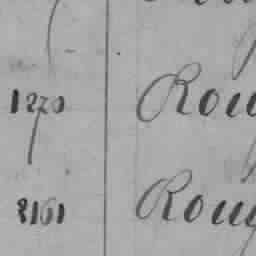 1270 Rou
2161 Roug